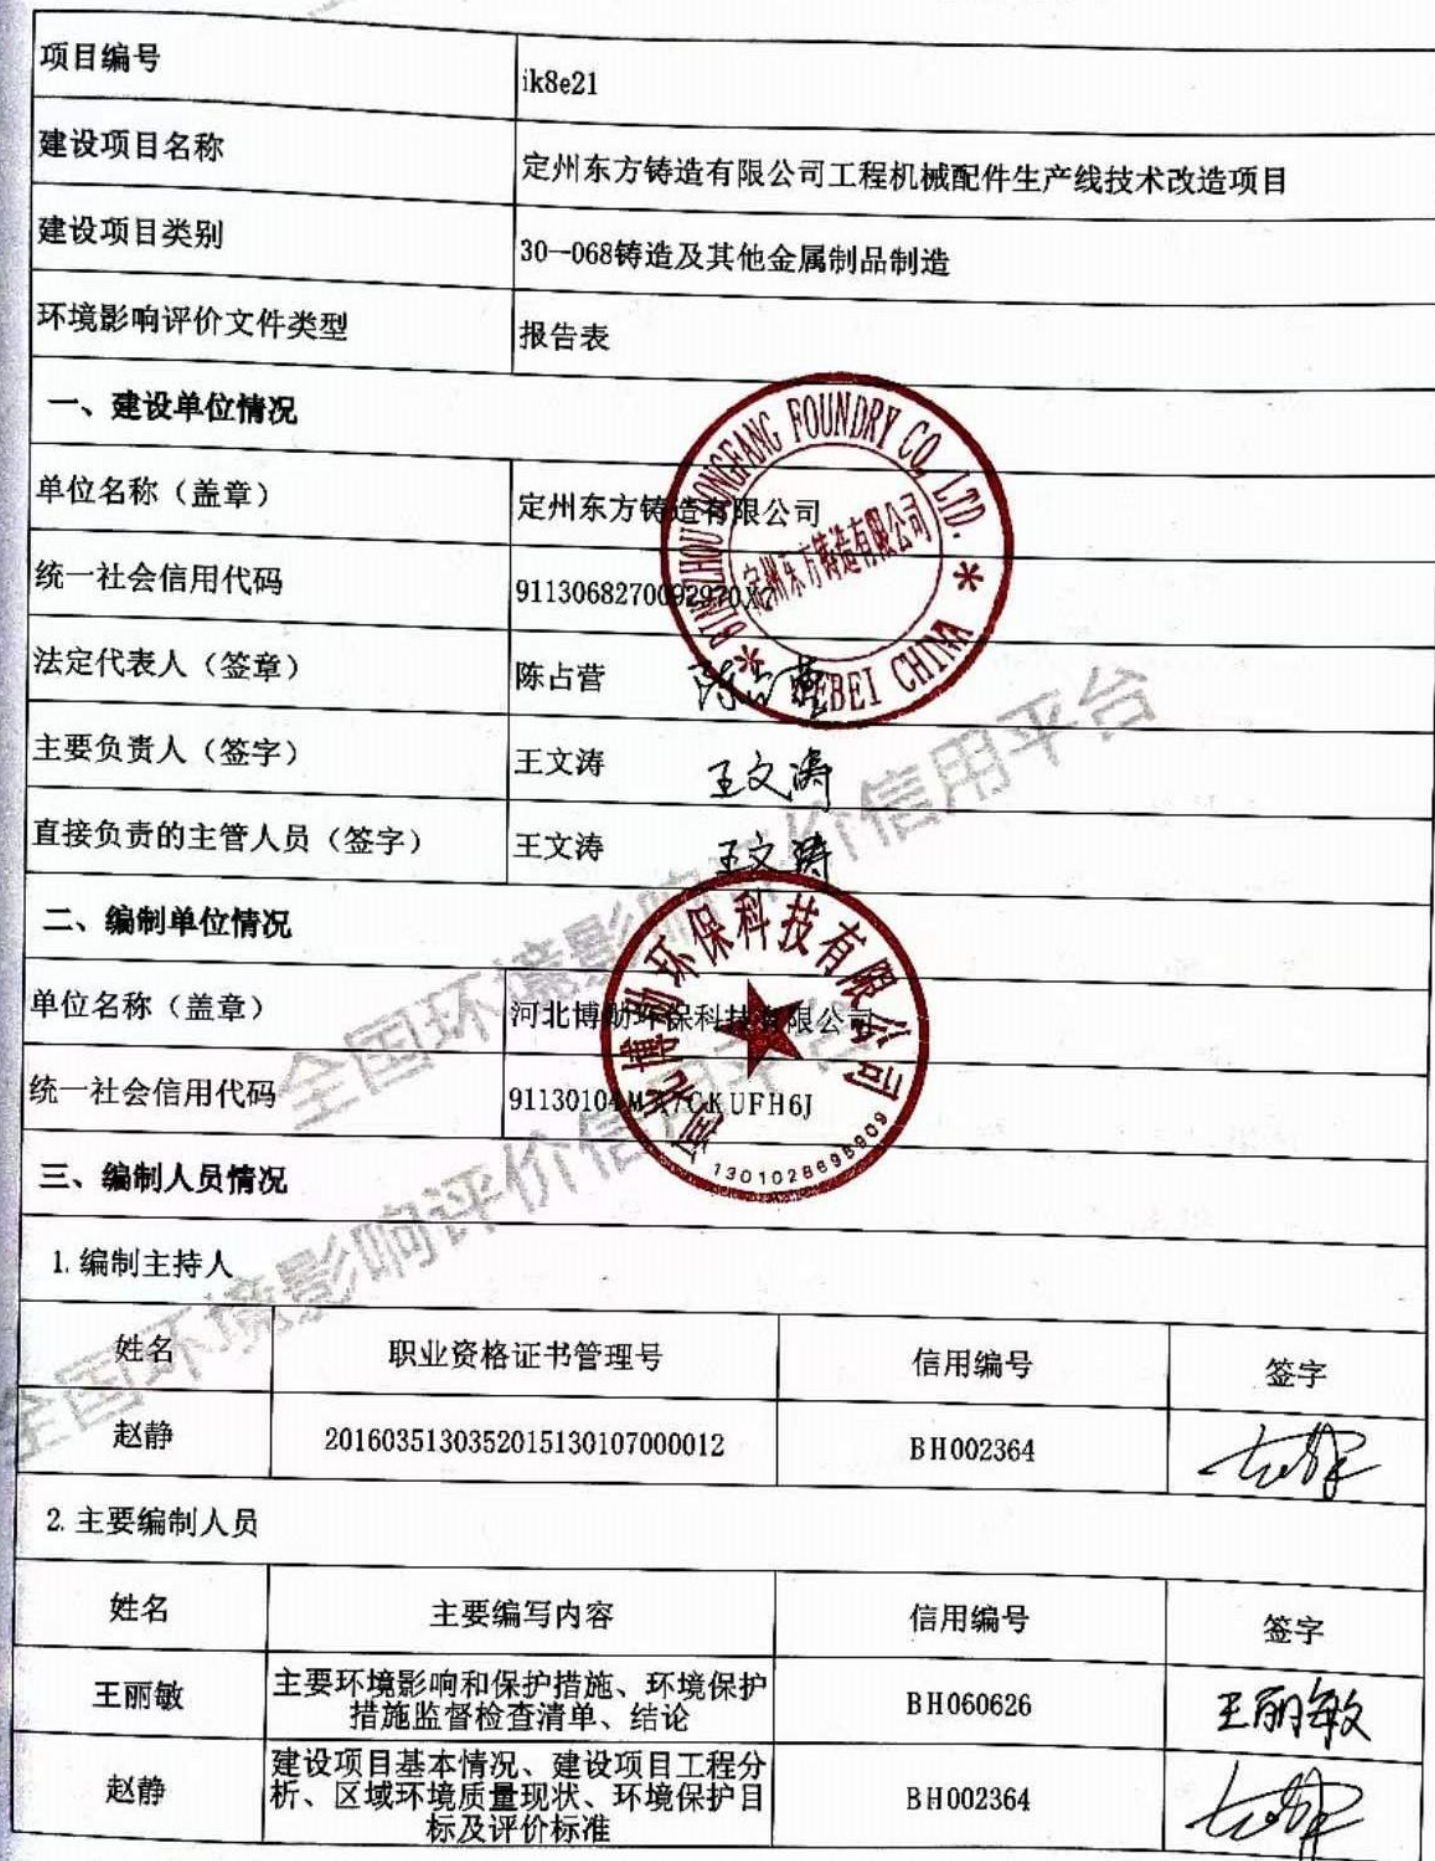 项目编号
ik8e21
建设项目名称
定州东方铸造有限公司工程机械配件生产线技术改造项目
建设项目类别
30--068铸造及其他金属制品制造
环境影响评价文件类型
报告表
一、建设单位情况
单位名称（盖章）
定州东方铸造有限公司
统一社会信用代码
9113068270092970X7
法定代表人（签章）
陈占营
陈占营
主要负责人（签字）
王文涛
王文涛
直接负责的主管人员（签字）
王文涛
王文涛
DINGZHOU DONGFANG FOUNDRY CO., LTD.
定州东方铸造有限公司
HEBEI CHINA
二、编制单位情况
单位名称（盖章）
河北博勋环保科技有限公司
统一社会信用代码
91130104MA7CKUFH6J
河北博勋环保科技有限公司
三、编制人员情况
1.编制主持人
姓名
职业资格证书管理号
信用编号
签字
赵静
2016035130352015130107000012
BH002364
赵静
2.主要编制人员
姓名
主要编写内容
信用编号
签字
王丽敏
主要环境影响和保护措施、环境保护
措施监督检查清单、结论
BH060626
王丽敏
赵静
建设项目基本情况、建设项目工程分
析、区域环境质量现状、环境保护目
标及评价标准
BH002364
赵静
全国环境影响评价信用平台
全国环境影响评价信用平台